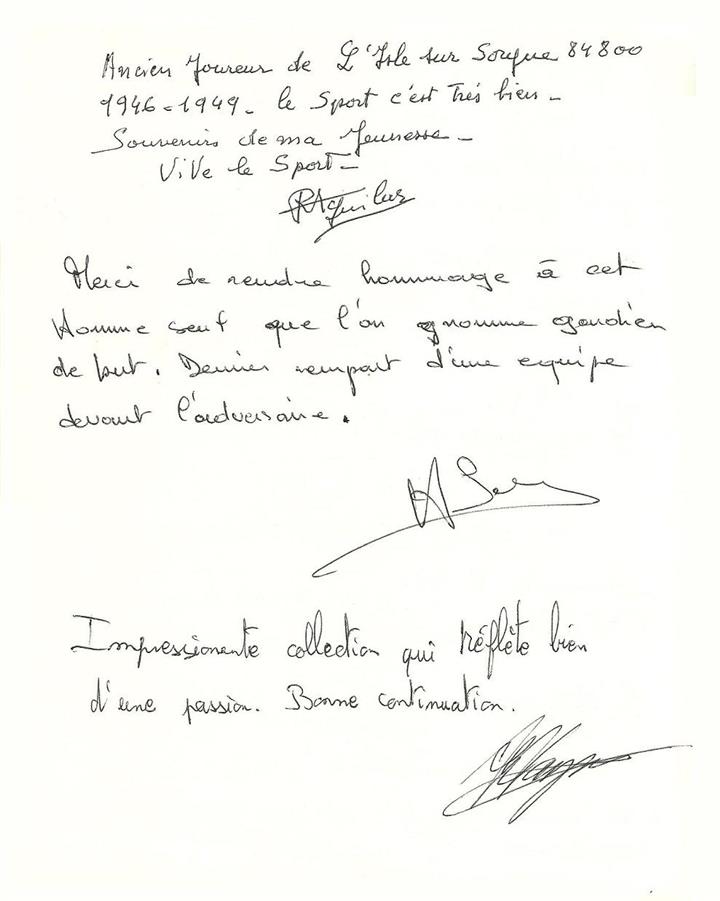 Ancien Joueur de L'Isle sur Sorgue 84800
1946-1949 - le Sport c'est Très bien -
Souvenirs de ma Jeunesse -
ViVe le Sport -
RAguilar
Merci de rendre hommage à cet
Homme seul que l'on nomme gardien
de but. Dernier rempart d'une equipe
devant l'adversaire.
Impressionante collection qui réflète bien
d'une passion. Bonne continuation.